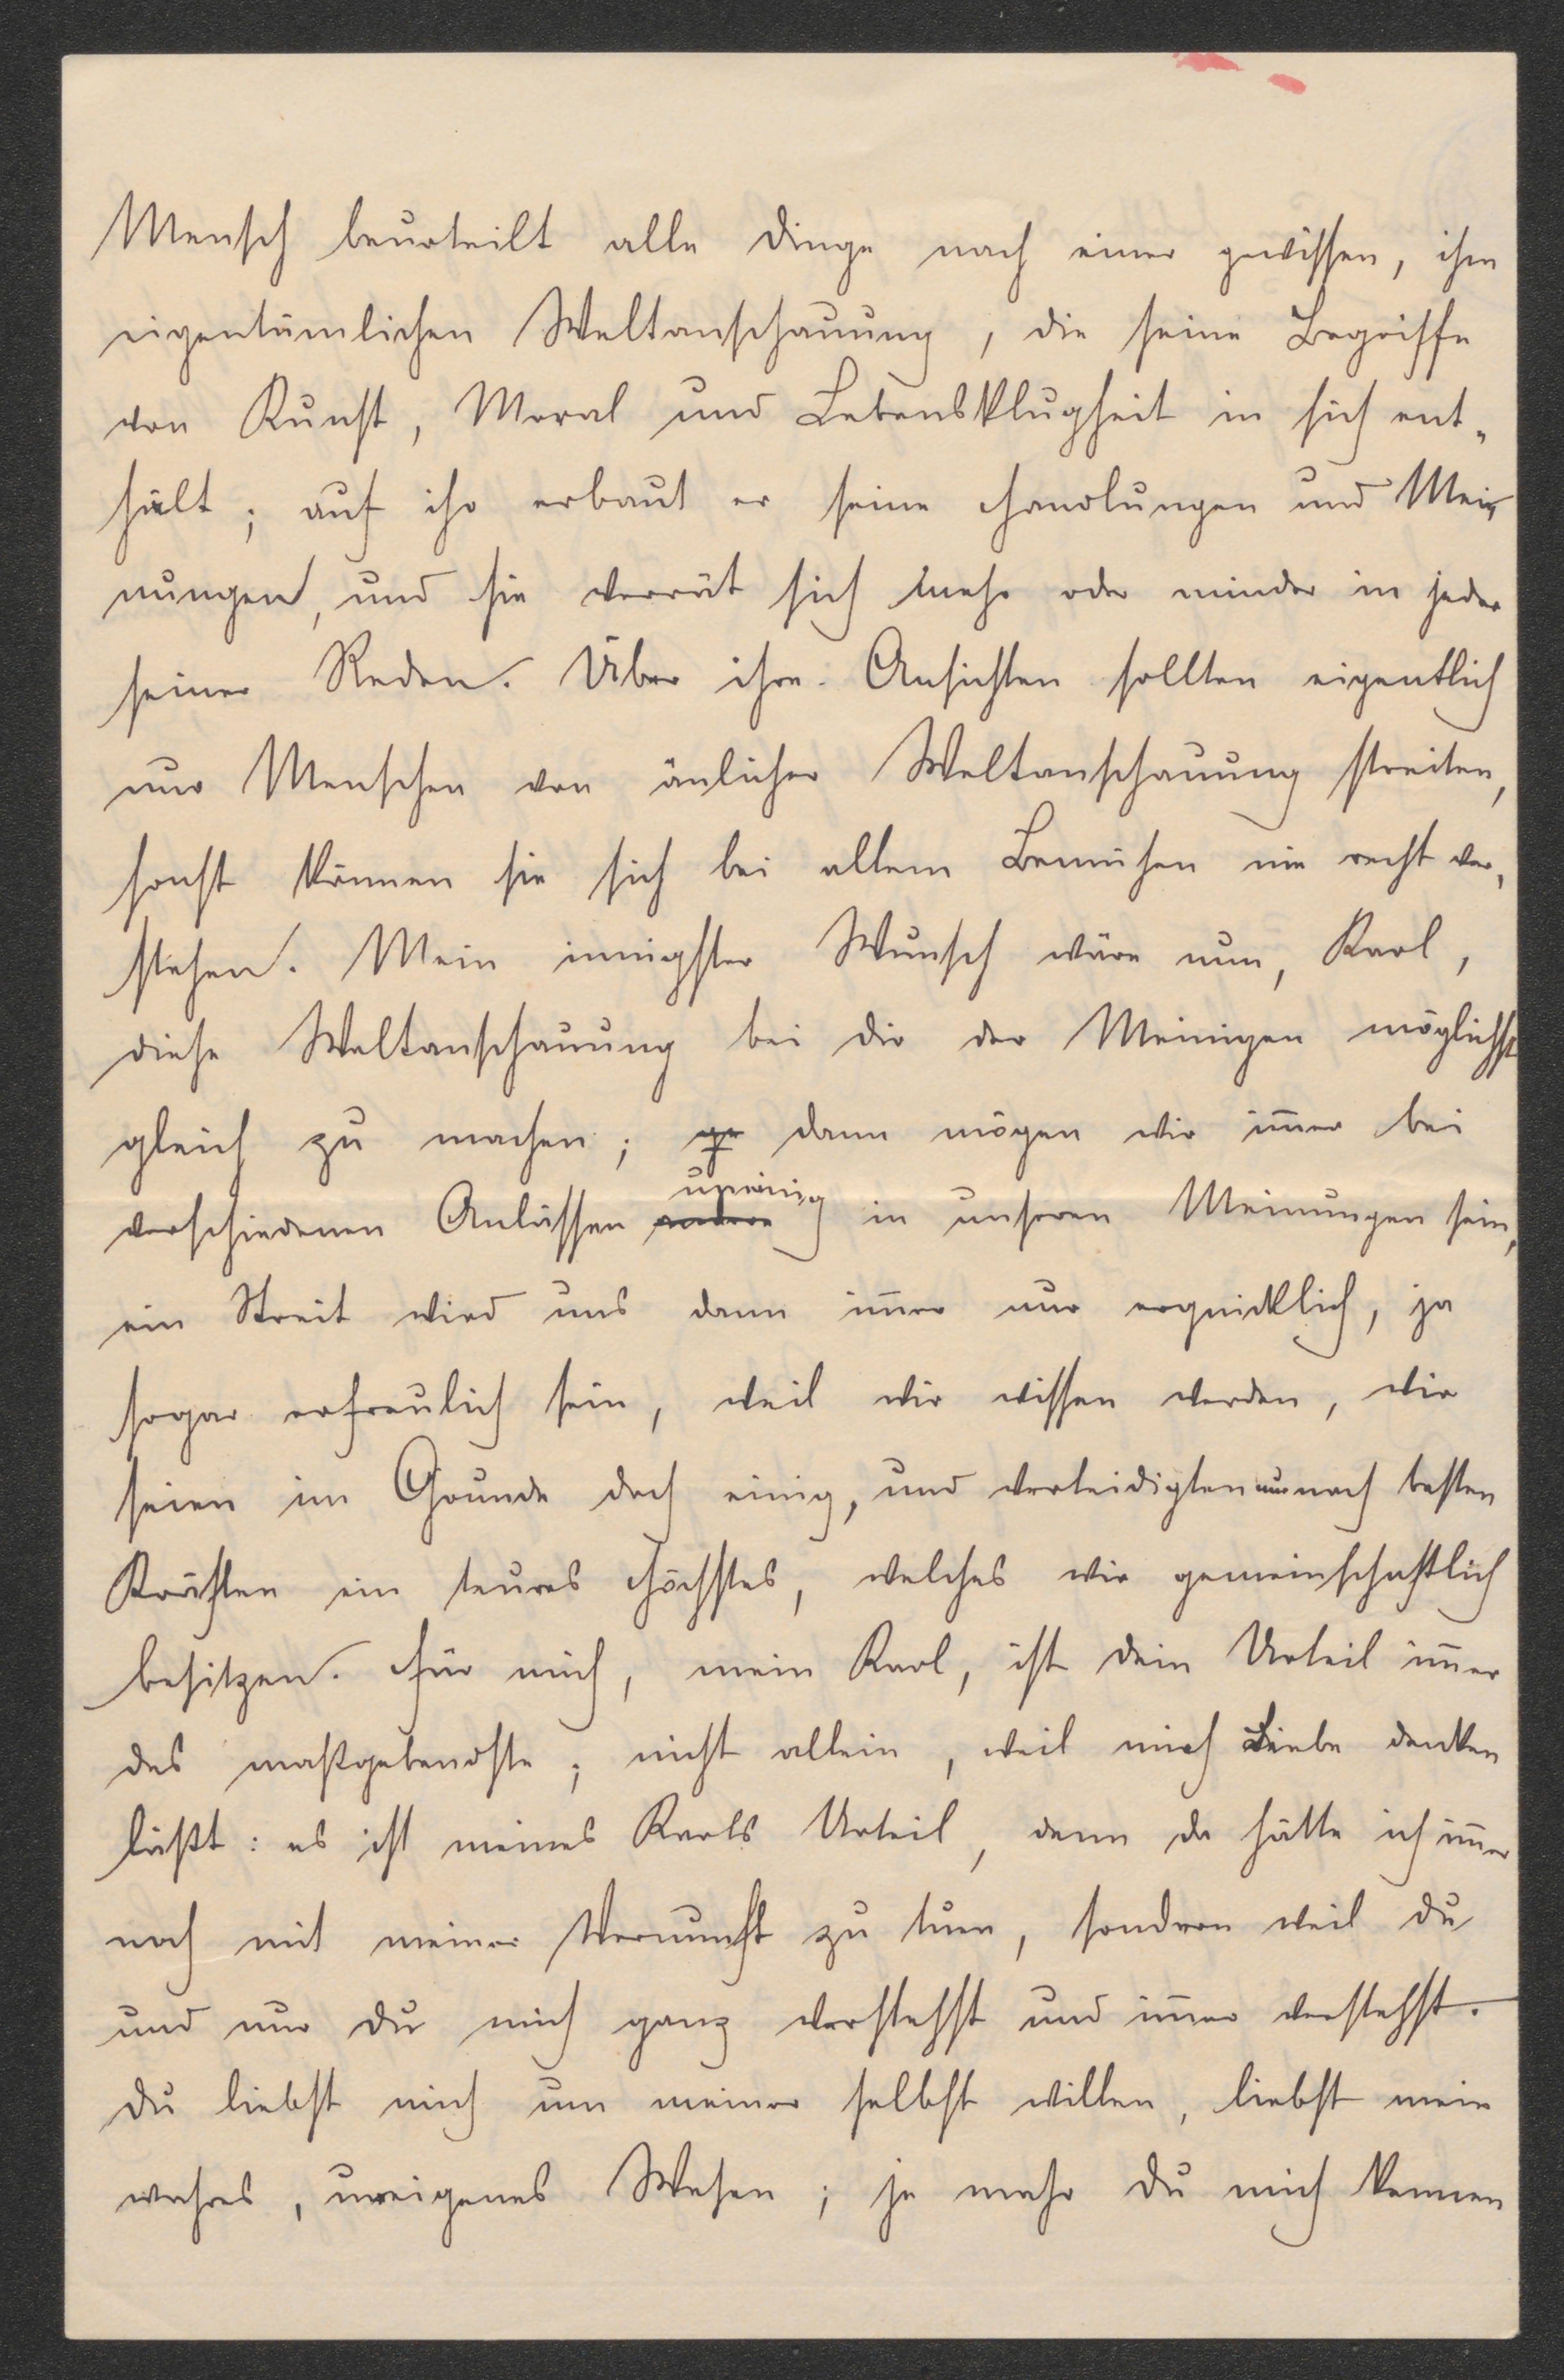 Mensch beurteilt alle Dinge nach einer gewissen, ihm
eigentümlichen Weltanschauung, die seine Begriffe
von Kunst, Moral und Lebensklugheit in sich ent-
hält; auf ihr erbaut er seine Handlungen und Mei-
nungen, und sie verrät sich mehr oder minder in jeder
seiner Reden. Über ihre Ansichten sollten eigentlich
nur Menschen von änlicher Weltanschauung streiten,
sonst können sie sich bei allem Bemühen nie recht ver-
stehen. Mein innigster Wunsch wäre nun, Karl,
diese Weltanschauung bei dir der Meinigen möglichst
gleich zu machen; ge dann mögen wir im̄er bei
uneinig
verschiedenen Anlässen andere in unseren Meinungen sein,
ein Streit wird uns dann im̄er nur erquicklich, ja
sogar erfreulich sein, weil wir wissen werden, wir
seien im Grunde doch einig, und verteidigten nur nach besten
Kräften ein teures Höchstes, welches wir gemeinschaftlich
besitzen. Für mich, mein Karl, ist dein Urteil im̄er
das maßgebendste; nicht allein, weil mich Liebe denken
läßt: es ist meines Karls Urteil, denn da hätte ich im̄er
noch mit meiner Vernunft zu tun, sondern weil du
und nur du mich ganz verstehst und im̄er verstehst.
Du liebst mich um meiner selbst willen, liebst mein
wahres, ureigenes Wesen; je mehr du mich kennen